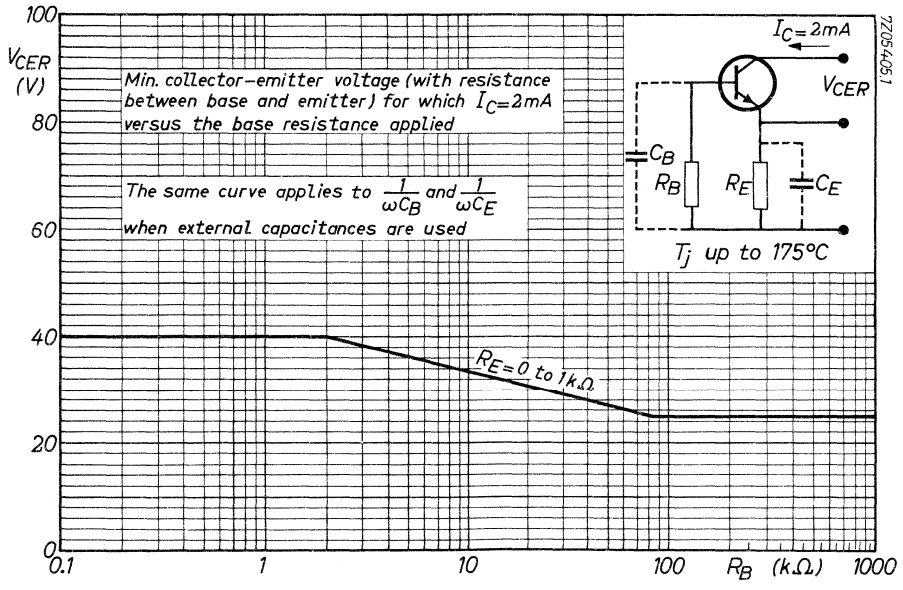 100
V_CER
(V)
80
60
40
20
0
0.1
1
10
100
R_B (kΩ)
1000
Min. collector-emitter voltage (with resistance
between base and emitter) for which I_C=2mA
versus the base resistance applied
The same curve applies to 1/ωC_B and 1/ωC_E
when external capacitances are used
R_E=0 to 1kΩ
I_C=2mA
V_CER
C_B
R_B
R_E
C_E
T_j up to 175°C
7Z05405.1